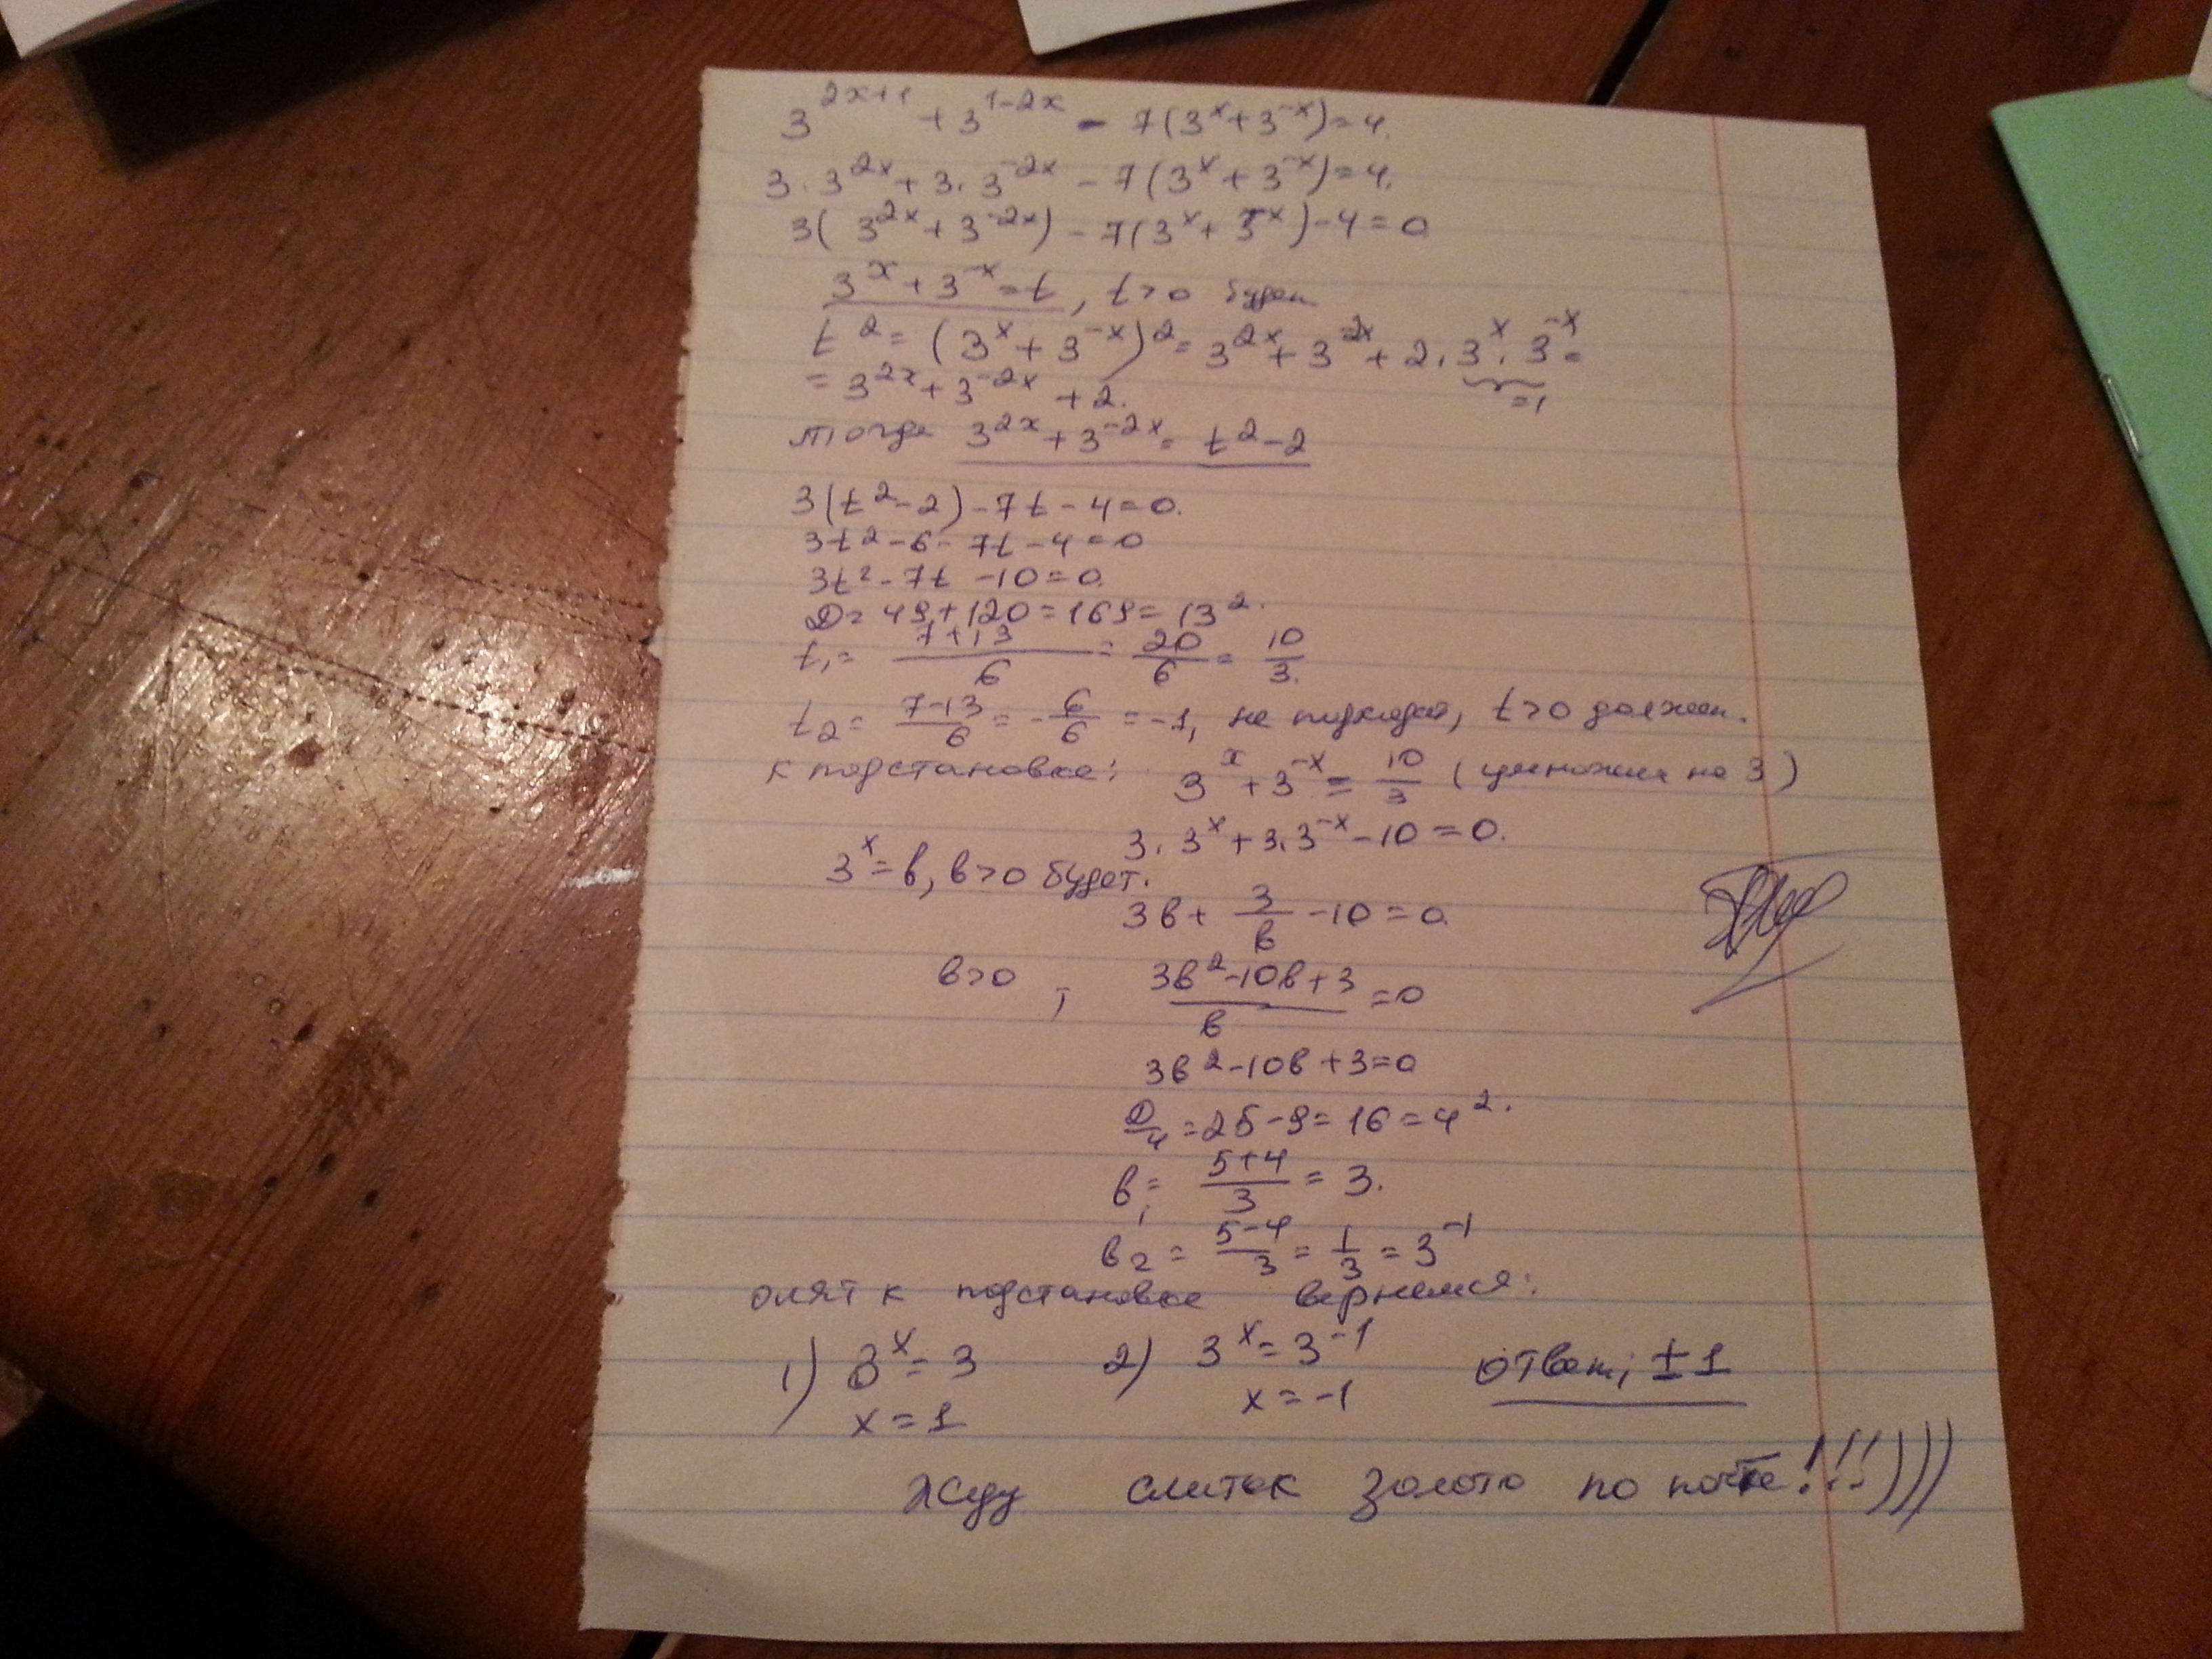 3^{2x+1} + 3^{1-2x} - 7(3^x + 3^{-x}) = 4.
3 · 3^{2x} + 3 · 3^{-2x} - 7(3^x + 3^{-x}) = 4.
3(3^{2x} + 3^{-2x}) - 7(3^x + 3^{-x}) - 4 = 0
3^x + 3^{-x} = t, t > 0 будет
t^2 = (3^x + 3^{-x})^2 = 3^{2x} + 3^{-2x} + 2 · 3^x · 3^{-x} =
= 1
= 3^{2x} + 3^{-2x} + 2.
тогда 3^{2x} + 3^{-2x} = t^2 - 2
3(t^2 - 2) - 7t - 4 = 0.
3t^2 - 6 - 7t - 4 = 0
3t^2 - 7t - 10 = 0.
D = 49 + 120 = 169 = 13^2.
t_1 = (7+13)/6 = 20/6 = 10/3.
t_2 = (7-13)/6 = -6/6 = -1, не подходит, t > 0 должен.
к подстановке: 3^x + 3^{-x} = 10/3 (умножим на 3)
3 · 3^x + 3 · 3^{-x} - 10 = 0.
3^x = b, b > 0 будет.
3b + 3/b - 10 = 0.
b > 0, (3b^2 - 10b + 3)/b = 0
3b^2 - 10b + 3 = 0
D/4 = 25 - 9 = 16 = 4^2.
b_1 = (5+4)/3 = 3.
b_2 = (5-4)/3 = 1/3 = 3^{-1}
опять к подстановке вернемся:
1) 3^x = 3 2) 3^x = 3^{-1} ответ: ±1
x = 1 x = -1
Жду слиток золота по почте!!!)))